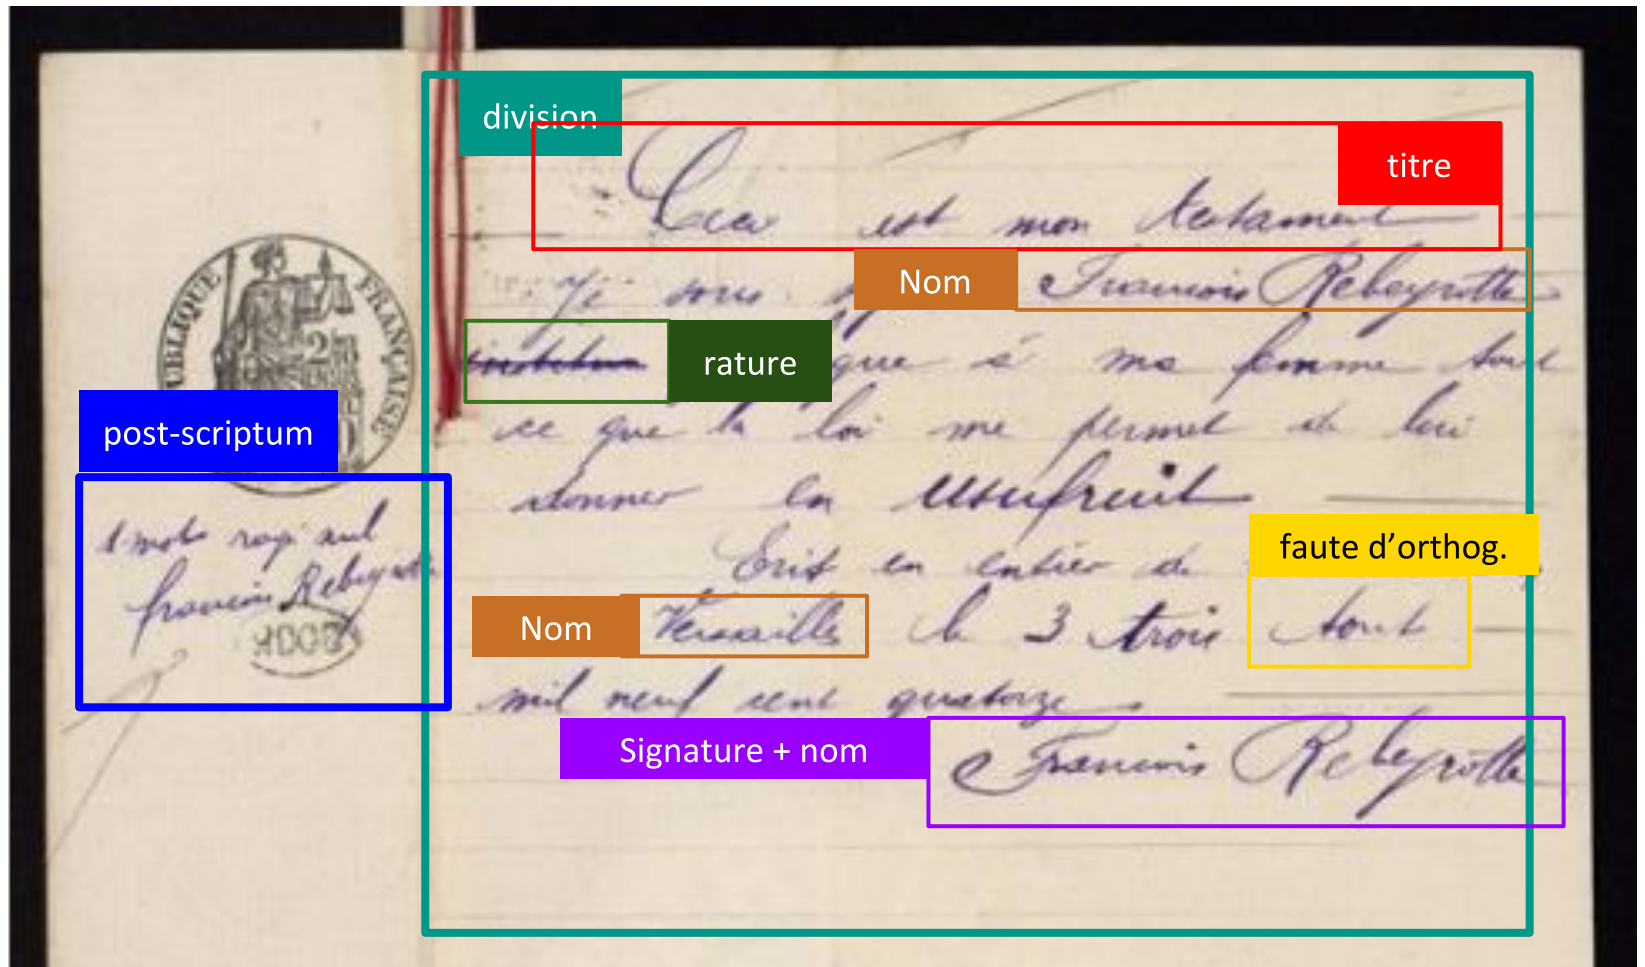 division
titre
Ceci est mon testament
Je sous Nom François Rebeyrotte
rature que à ma femme tout
ce que la loi me permet de lui
donner en usufruit
faute d'orthog.
Écrit en entier de
Nom Versailles le 3 trois Aout
mil neuf cent quatorze
Signature + nom François Rebeyrotte
RÉPUBLIQUE FRANÇAISE
post-scriptum
1 mots nul
François Rebeyrotte